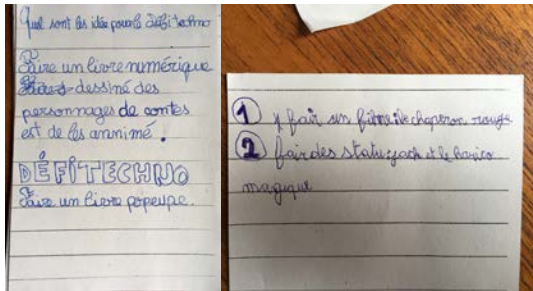 Quel sont les idée pour le Défi techno
Faire un livre numérique
dessiné des
personnages de contes
est de les annimé.
DÉFITECHNO
Faire un livre popeupe.
1 y fair un filme le chaperon rouge
2 fair des statu jack et le harico
magique